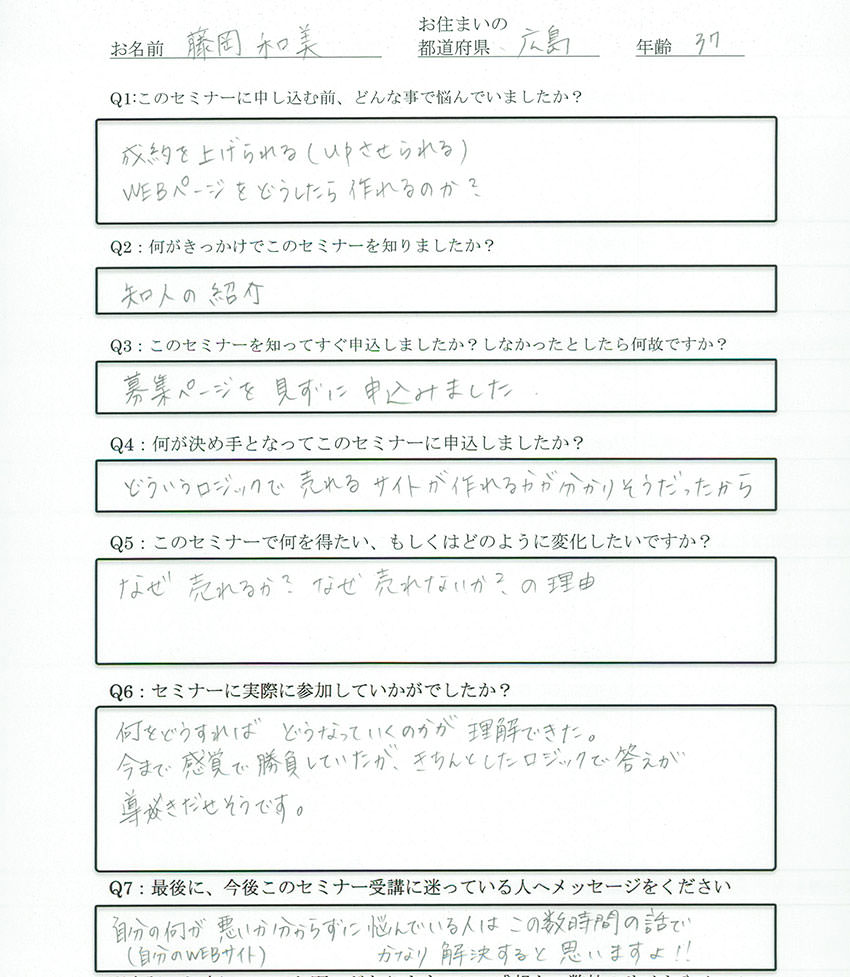 お名前 藤岡 和美 お住まいの都道府県 広島 年齢 37
Q1:このセミナーに申し込む前、どんな事で悩んでいましたか？
成約を上げられる(upさせられる)
WEBページをどうしたら作れるのか？
Q2：何がきっかけでこのセミナーを知りましたか？
知人の紹介
Q3：このセミナーを知ってすぐ申込しましたか？しなかったとしたら何故ですか？
募集ページを見ずに申込みました.
Q4：何が決め手となってこのセミナーに申込しましたか？
どういうロジックで売れるサイトが作れるかが分かりそうだったから
Q5：このセミナーで何を得たい、もしくはどのように変化したいですか？
なぜ売れるか？なぜ売れないか？の理由
Q6：セミナーに実際に参加していかがでしたか？
何をどうすれば どうなっていくのかが理解できた。
今まで感覚で勝負していたが、きちんとしたロジックで答えが
導きだせそうです。
Q7：最後に、今後このセミナー受講に迷っている人へメッセージをください
自分の何が悪いか分からずに悩んでいる人はこの数時間の話で
(自分のWEBサイト) かなり解決すると思いますよ!!